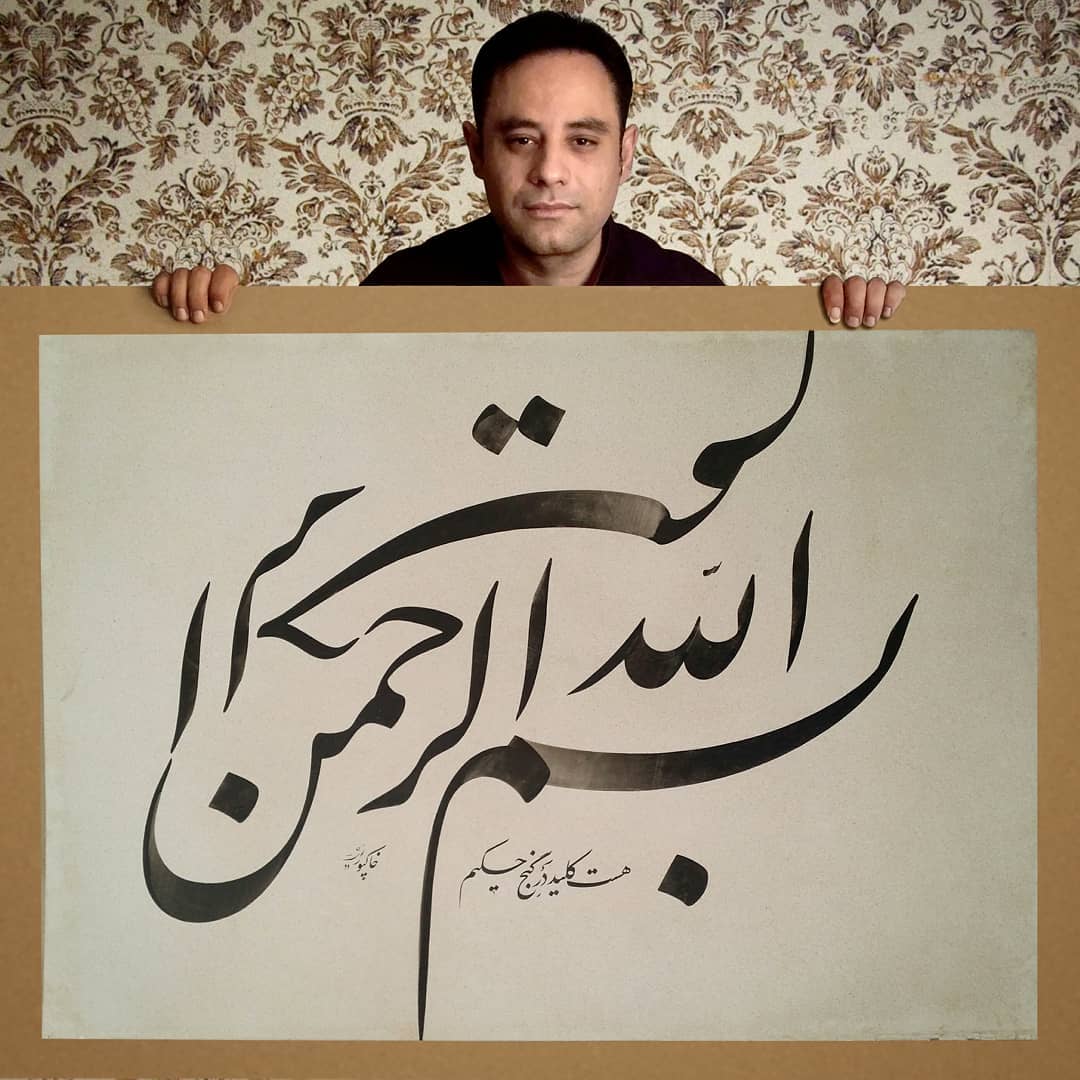 بسم الله الرحمن الرحیم
هست کلید در گنج حکیم
خاکپور